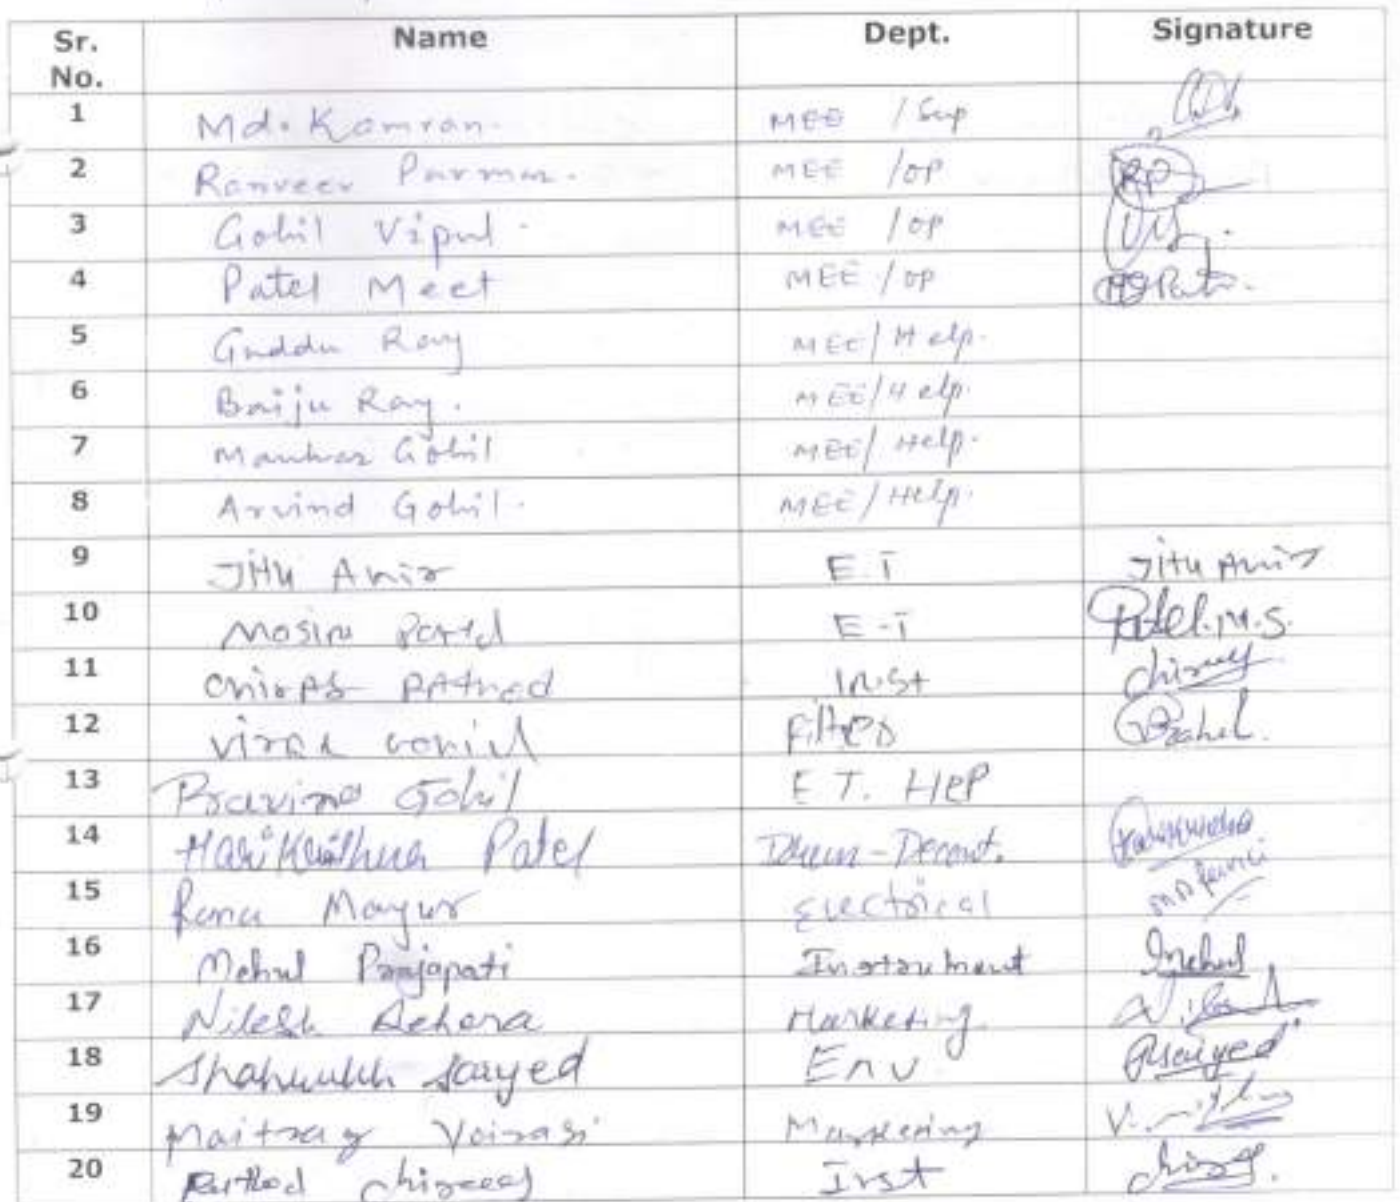 Sr. No. Name Dept. Signature
1 Md. Kamran. MEE / Sup
2 Ranveer Parmar. MEE / OP RP
3 Gohil Vipul. MEE / OP
4 Patel Meet MEE / OP
5 Guddu Ray MEE / Help.
6 Baiju Ray. MEE / Help.
7 Manhar Gohil MEE / Help.
8 Arvind Gohil. MEE / Help.
9 Jitu Ahir E.T Jitu Ahir
10 Mosin Patel E-T Patel.M.S.
11 Chirag Inst Chirag
12 Viral Gohil
13 Pravin Gohil E T. Hep
14 Harikrishna Patel
15 Rana Mayur Electrical
16 Mehul Prajapati Instrument Mehul
17 Nilesh Marketing
18 Shahrukh Saiyed Env Saiyed
19 Maitray Marketing
20 Rathod Chirag Inst Chirag.